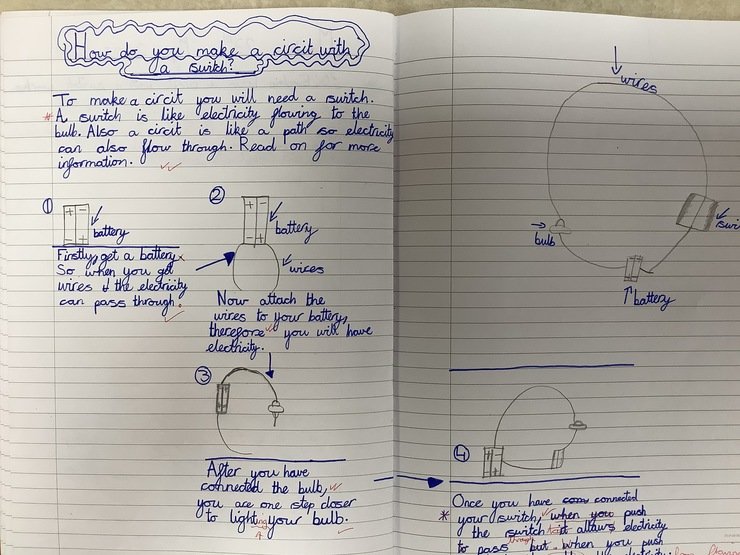 How do you make a circit with
a switch?
To make a circit you will need a switch.
* A switch is like electricity flowing to the
bulb. Also a circit is like a path so electricity
can also flow through. Read on for more
information.
1
+ -
battery
Firstly, get a battery
So when you get
wires & the electricity
can pass through.
2
+ -
battery
wires
Now attach the
wires to your battery,
therefore you will have
electricity.
3
After you have
connected the bulb,
you are one step closer
to lighting your bulb.
wires
bulb
swi
battery
4
Once you have connected
* your switch, when you push
the switch it allows electricity
to pass through but when you push